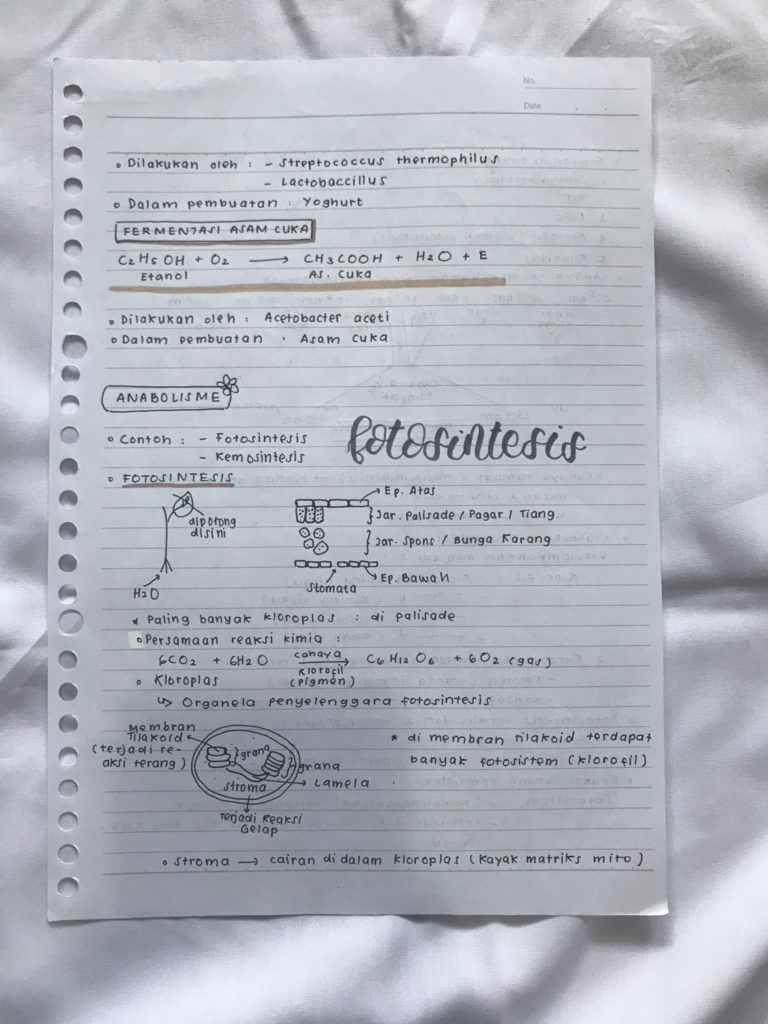 No.
Date
• Dilakukan oleh : - Streptococcus thermophilus
- Lactobaccillus
• Dalam pembuatan : Yoghurt
FERMENTASI ASAM CUKA
C2H5OH + O2 → CH3COOH + H2O + E
Etanol As. cuka
• Dilakukan oleh : Acetobacter aceti
• Dalam pembuatan : Asam cuka
ANABOLISME
• Contoh : - Fotosintesis
- Kemosintesis
fotosintesis
• FOTOSINTESIS
dipotong
disini
H2O
Ep. Atas
Jar. Palisade / Pagar / Tiang
Jar. Spons / Bunga Karang
Ep. Bawah
Stomata
* Paling banyak kloroplas : di palisade
• Persamaan reaksi kimia :
6CO2 + 6H2O cahaya → klorofil (pigmen) C6H12O6 + 6O2 (gas)
• Kloroplas
↳ Organela penyelenggara fotosintesis
Membran
Tilakoid
(terjadi re-
aksi terang)
grana
grana
Lamela
stroma
Terjadi Reaksi
Gelap
* di membran tilakoid terdapat
banyak fotosistem (klorofil)
• Stroma → cairan di dalam kloroplas (kayak matriks mito)